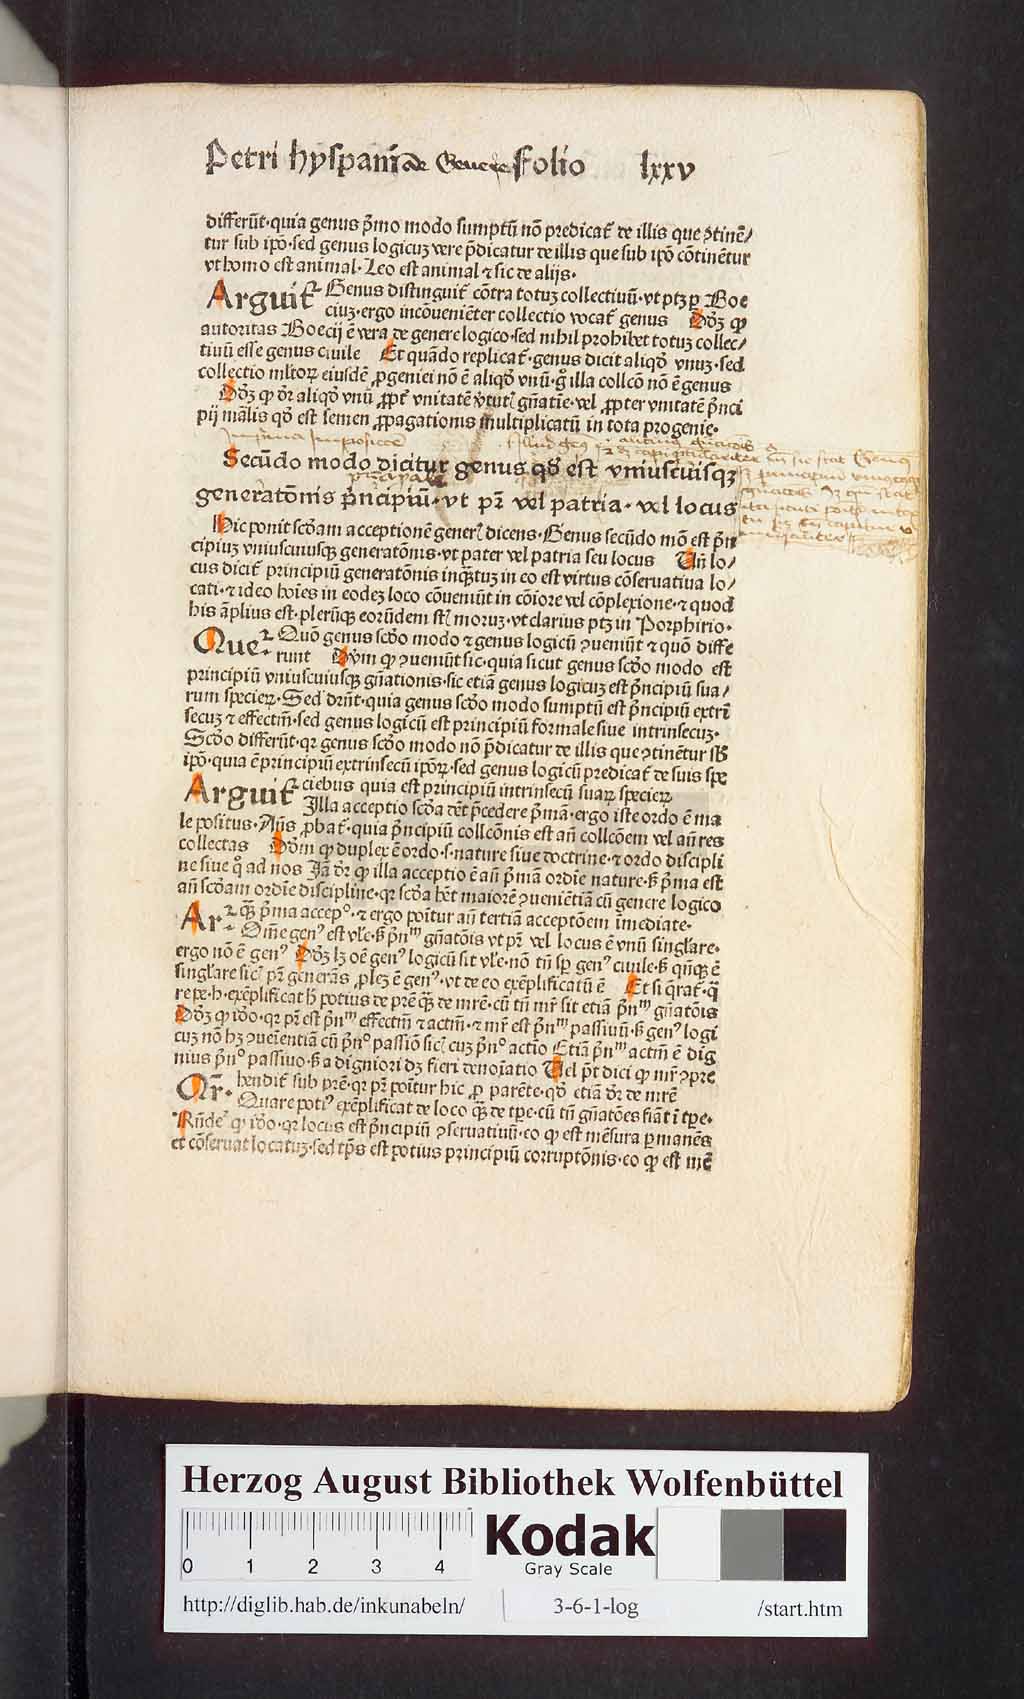 Petri hyspani de Genere Folio lxxv
differūt·quia genus p̄mo modo sumptū nō predicat̄ de illis que ꝯtinē/
tur sub ip̄o·sed genus logicuꝫ vere p̄dicatur de illis que sub ip̄o cōtinētur
vt homo est animal·Leo est animal ⁊ sic de alijs·
Arguit̄ Genus distinguit̄ cōtra totuꝫ collectiuū·vt ptꝫ ꝑ Boe
ciuꝫ·ergo incōueniēter collectio vocat̄ genus Dōꝫ ꝙ
autoritas Boecij ē vera de genere logico·sed nihil prohibet totuꝫ collec/
tiuū esse genus ciuile Et quādo replicat̄·genus dicit aliqd̄ vnuꝫ·sed
collectio mltoꝝ eiusdē ꝓgeniei nō ē aliqd̄ vnū·gͦ illa collcō nō ē genus
Dōꝫ ꝙ dr̄ aliqd̄ vnū ꝓpt̄ vnitatē gn̄atie·vel ꝓpter vnitatē p̄nci
pij mālis qd̄ est semen ꝓpagationis multiplicatū in tota progenie·
Secūdo modo dicitur genus qd̄ est vniuscuisqꝫ
generatōnis p̄ncipiū·vt pr̄ vel patria·vel locus
Hic ponit scd̄am acceptionē generꝭ dicens·Genus secūdo mō est p̄n
cipiuꝫ vniuscuiusqꝫ generatōnis·vt pater vel patria seu locus Un̄ lo/
cus dicit̄ principiū generatōnis inqꝫtuꝫ in eo est virtus cōseruatiua lo/
cati·⁊ ideo hoīes in eodeꝫ loco cōueniūt in cōiore vel cōplexione·⁊ quod
his āplius est·plerūqꝫ eorūdem st̄ moruꝫ·vt clarius ptꝫ in Porphirio·
Que Quō genus scd̄o modo ⁊ genus logicū ꝯueniūt ⁊ quō diffe
runt Dōm ꝙ ꝯueniūt sic·quia sicut genus scd̄o modo est
principiū vniuscuiusqꝫ gn̄ationis·sic etiā genus logicuꝫ est p̄ncipiū sua/
rum specieꝝ·Sed dr̄nt·quia genus scd̄o modo sumptū est p̄ncipiū extrī
secuꝫ ⁊ effectīm·sed genus logicū est principiū formale siue intrinsecuꝫ·
Scd̄o differūt·qꝛ genus scd̄o modo nō p̄dicatur de illis que ꝯtinētur sb̄
ip̄o·quia ē principiū extrinsecū ip̄oꝝ·sed genus logicū predicat̄ de suis spe
Arguit̄ ciebus quia est principiū intrinsecū suaꝝ specieꝝ
Illa acceptio scd̄a dēt p̄cedere p̄mā·ergo iste ordo ē ma
le positus·Añs ꝓbat̄·quia p̄ncipiū collcōnis est añ collcōem vel añ res
collectas Dōm ꝙ duplex ē ordo·s·nature siue doctrine·⁊ ordo discipli
ne siue qͦ ad nos Jā dr̄ ꝙ illa acceptio ē añ p̄mā ordīe nature·ß p̄ma est
añ scd̄am ordīe discipline·qꝛ scd̄a hēt maiorē ꝯueniētiā cū genere logico
Ar qꝫ p̄ma accepº·⁊ ergo poītur añ tertiā acceptōem īmediate·
Oīne genꝰ est vle·ß p̄nᵐ gn̄atōis vt pr̄ vel locus ē vnū singlare·
ergo nō ē genꝰ Dōꝫ lꝫ oē genꝰ logicū sit vle·nō tn̄ sꝑ genꝰ ciuile·ß qn̄qꝫ ē
singlare sicꝭ pr̄ generās ꝓleꝫ ē genꝰ·vt de eo exēplificatū ē Et si qrat̄·q̄
repe·h·exēplificat hͨ potius de prē qꝫ de mrē·cū tn̄ mr̄ sit etiā p̄nᵐ gn̄atōis
Dōꝫ ꝙ iō·qꝛ pr̄ est p̄nᵐ effectīm ⁊ actīm·⁊ mr̄ est p̄nᵐ passiuū·ß genꝰ logi
cuꝫ nō hꝫ ꝯueīentiā cū p̄nº passiō sicꝭ cuꝫ p̄nº actiō Etiā p̄nᵐ actīm ē dig
nius p̄nº passiuo·ß a digniori dꝫ fieri denoīatio Uel p̄t dici ꝙ mr̄ ꝯpre
Qr̄· hendit̄ sub prē·qꝛ pr̄ poītur hic ꝓ parēte·qd̄ etiā dr̄ de mrē
Quare potiꝰ exēplificat de loco qꝫ de tꝑe·cū tn̄ gn̄atōes fiāt ī tꝑe·
Rn̄deꝰ ꝙ iō·qꝛ locus est p̄ncipiū ꝯseruatiuū·eo ꝙ est mēsura ꝑmanēs
et cōseruat locatuꝫ·sed tp̄s est potius principiū corruptōnis·eo ꝙ est mē
Herzog August Bibliothek Wolfenbüttel
0 1 2 3 4
Kodak
Gray Scale
http://diglib.hab.de/inkunabeln/ 3-6-1-log /start.htm